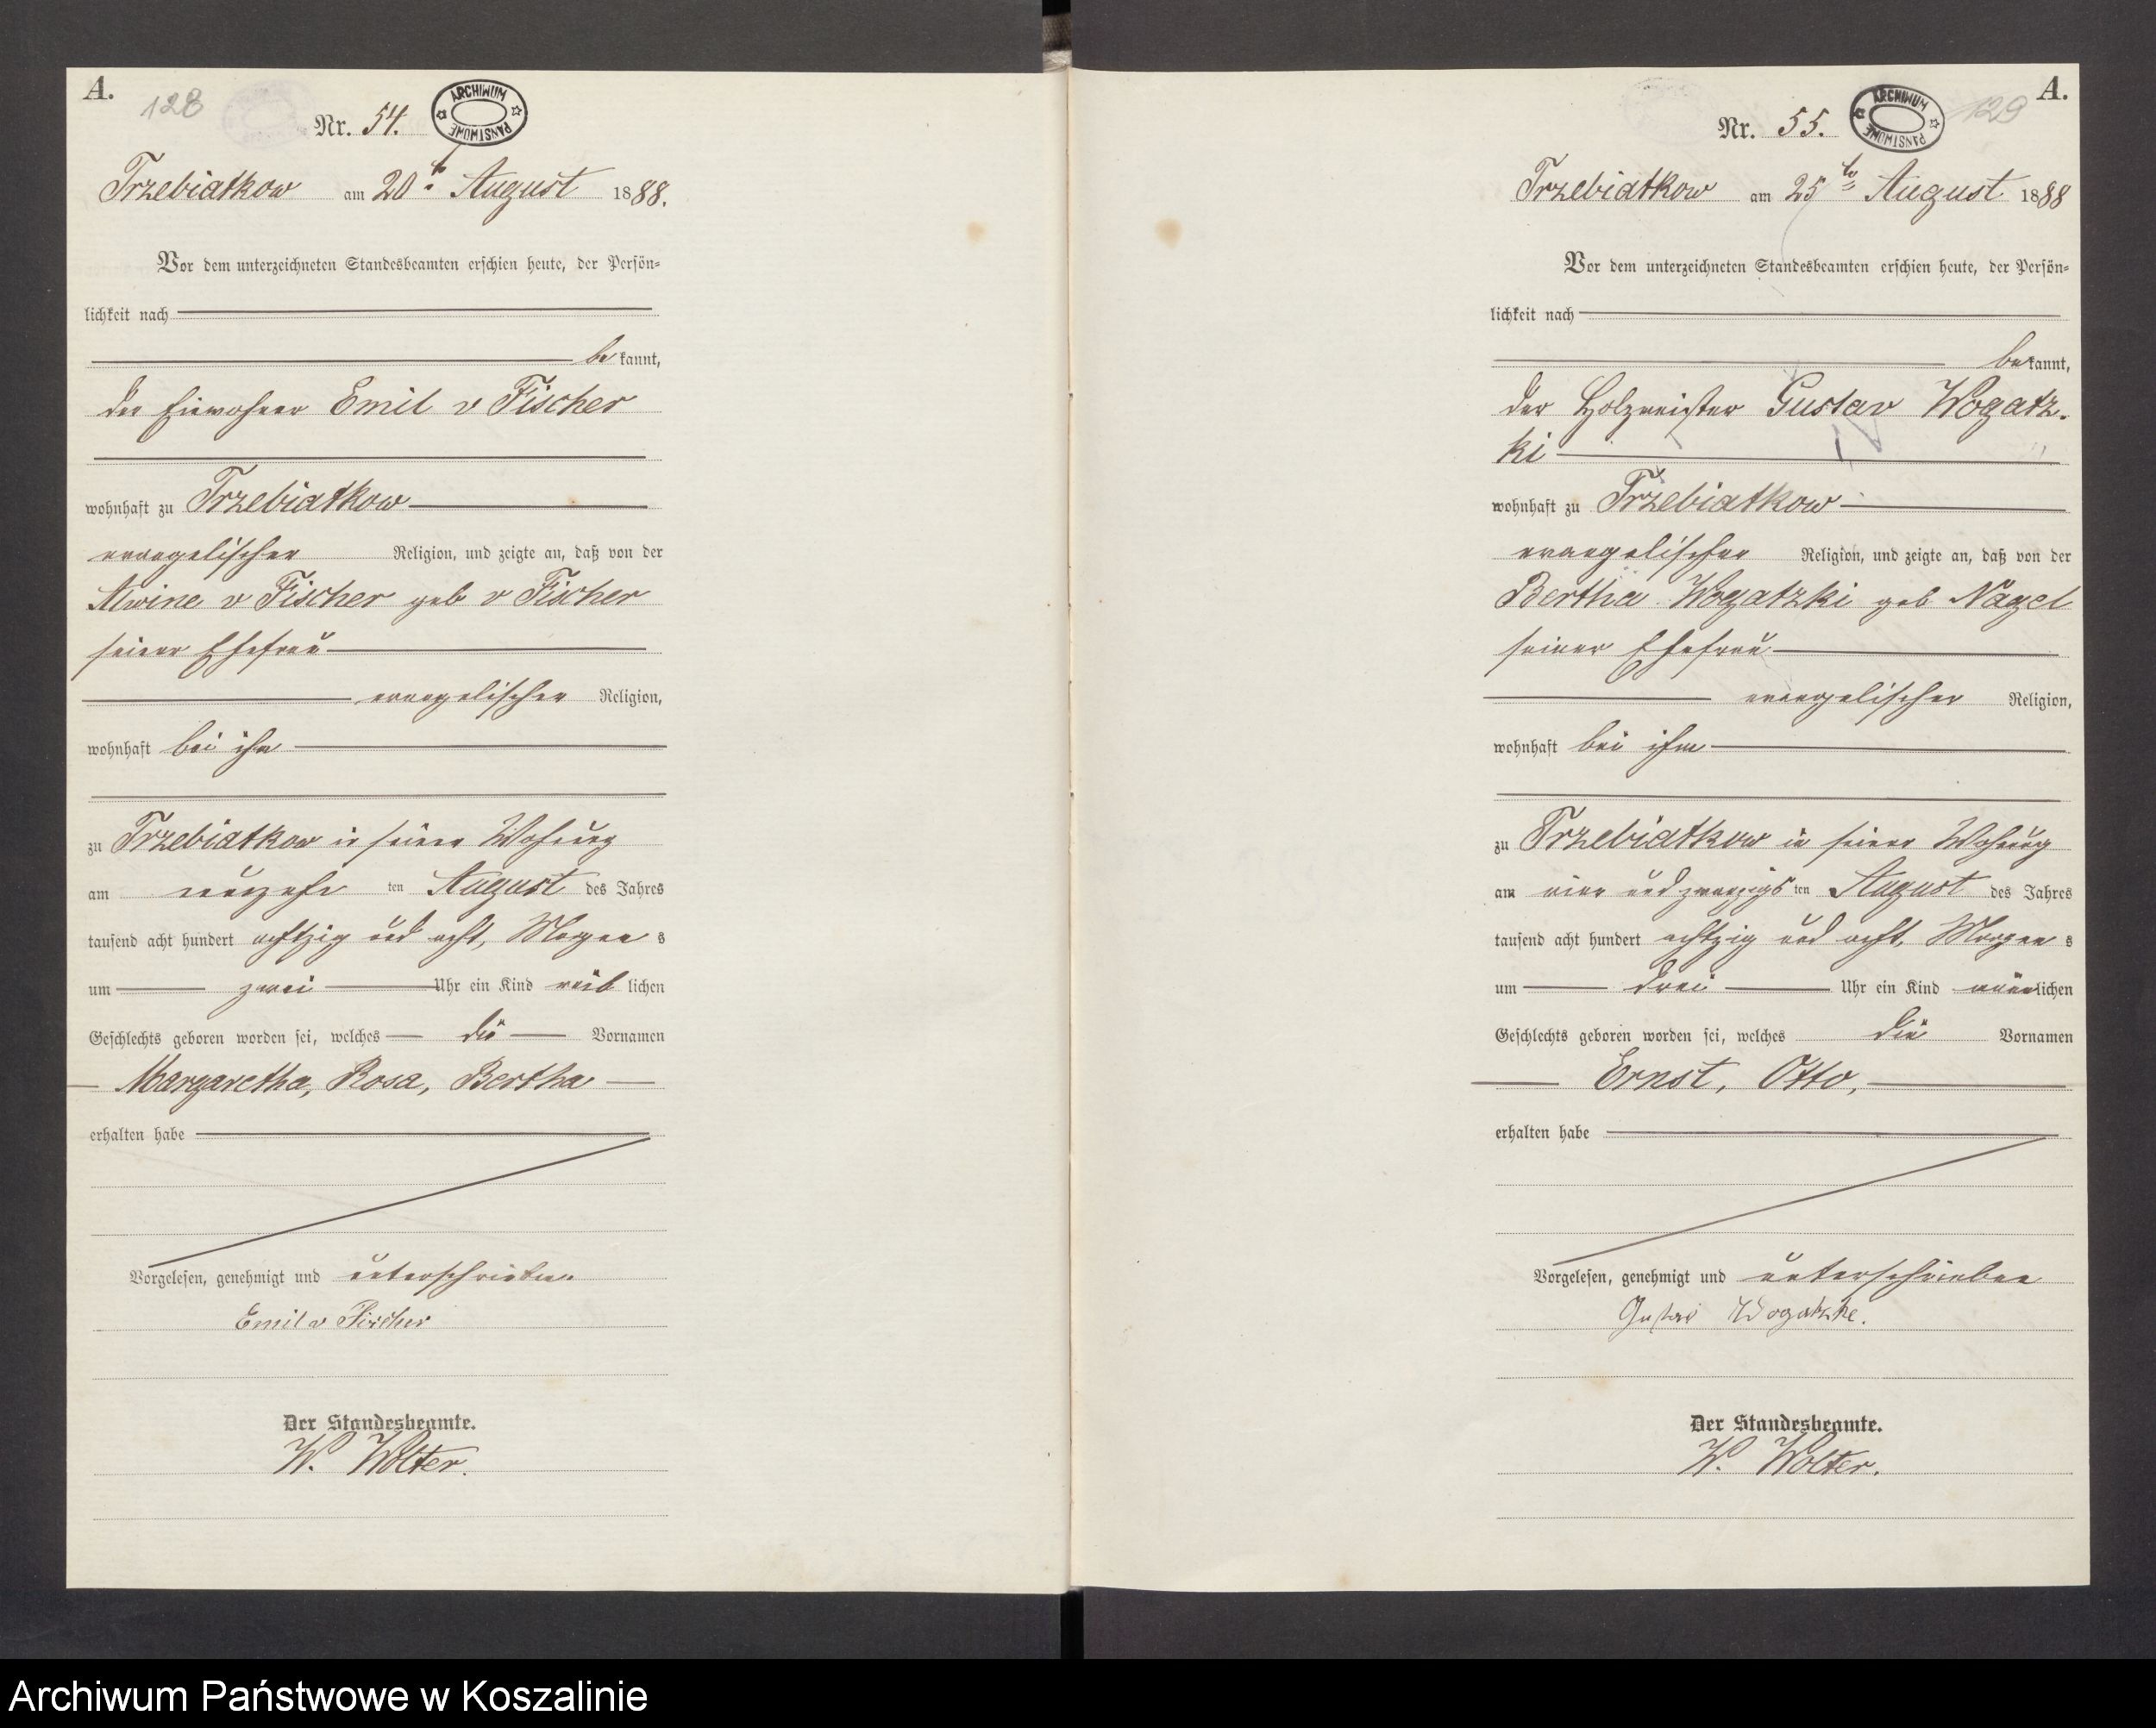 A.
128
Nr. 54.
ARCHIWUM PAŃSTWOWE
Trzebiatkow am 20ten August 1888.
Vor dem unterzeichneten Standesbeamten erschien heute, der Persön=
lichkeit nach
be kannt,
der Einwohner Emil v Fischer
wohnhaft zu Trzebiatkow
evangelischer Religion, und zeigte an, daß von der
Alwine v Fischer geb v Fischer
seiner Ehefrau
evangelischer Religion,
wohnhaft bei ihm
zu Trzebiatkow in seiner Wohnung
am neunzehn ten August des Jahres
tausend acht hundert achtzig und acht, Morgen s
um zwei Uhr ein Kind weib lichen
Geschlechts geboren worden sei, welches die Vornamen
Margaretha, Rosa, Bertha
erhalten habe
Vorgelesen, genehmigt und unterschrieben.
Emil v Fischer
Der Standesbeamte.
W. Wolter.
A.
129
Nr. 55.
ARCHIWUM PAŃSTWOWE
Trzebiatkow am 25ten August 1888
Vor dem unterzeichneten Standesbeamten erschien heute, der Persön=
lichkeit nach
be kannt,
der Holzmeister Gustav Wogatz-
ki
wohnhaft zu Trzebiatkow
evangelischer Religion, und zeigte an, daß von der
Bertha Wogatzki geb Nagel
seiner Ehefrau
evangelischer Religion,
wohnhaft bei ihm
zu Trzebiatkow in seiner Wohnung
am vier und zwanzigs ten August des Jahres
tausend acht hundert achtzig und acht, Morgen s
um drei Uhr ein Kind männ lichen
Geschlechts geboren worden sei, welches die Vornamen
Ernst, Otto,
erhalten habe
Vorgelesen, genehmigt und unterschrieben
Gustav Wogatzke.
Der Standesbeamte.
W. Wolter.
Archiwum Państwowe w Koszalinie